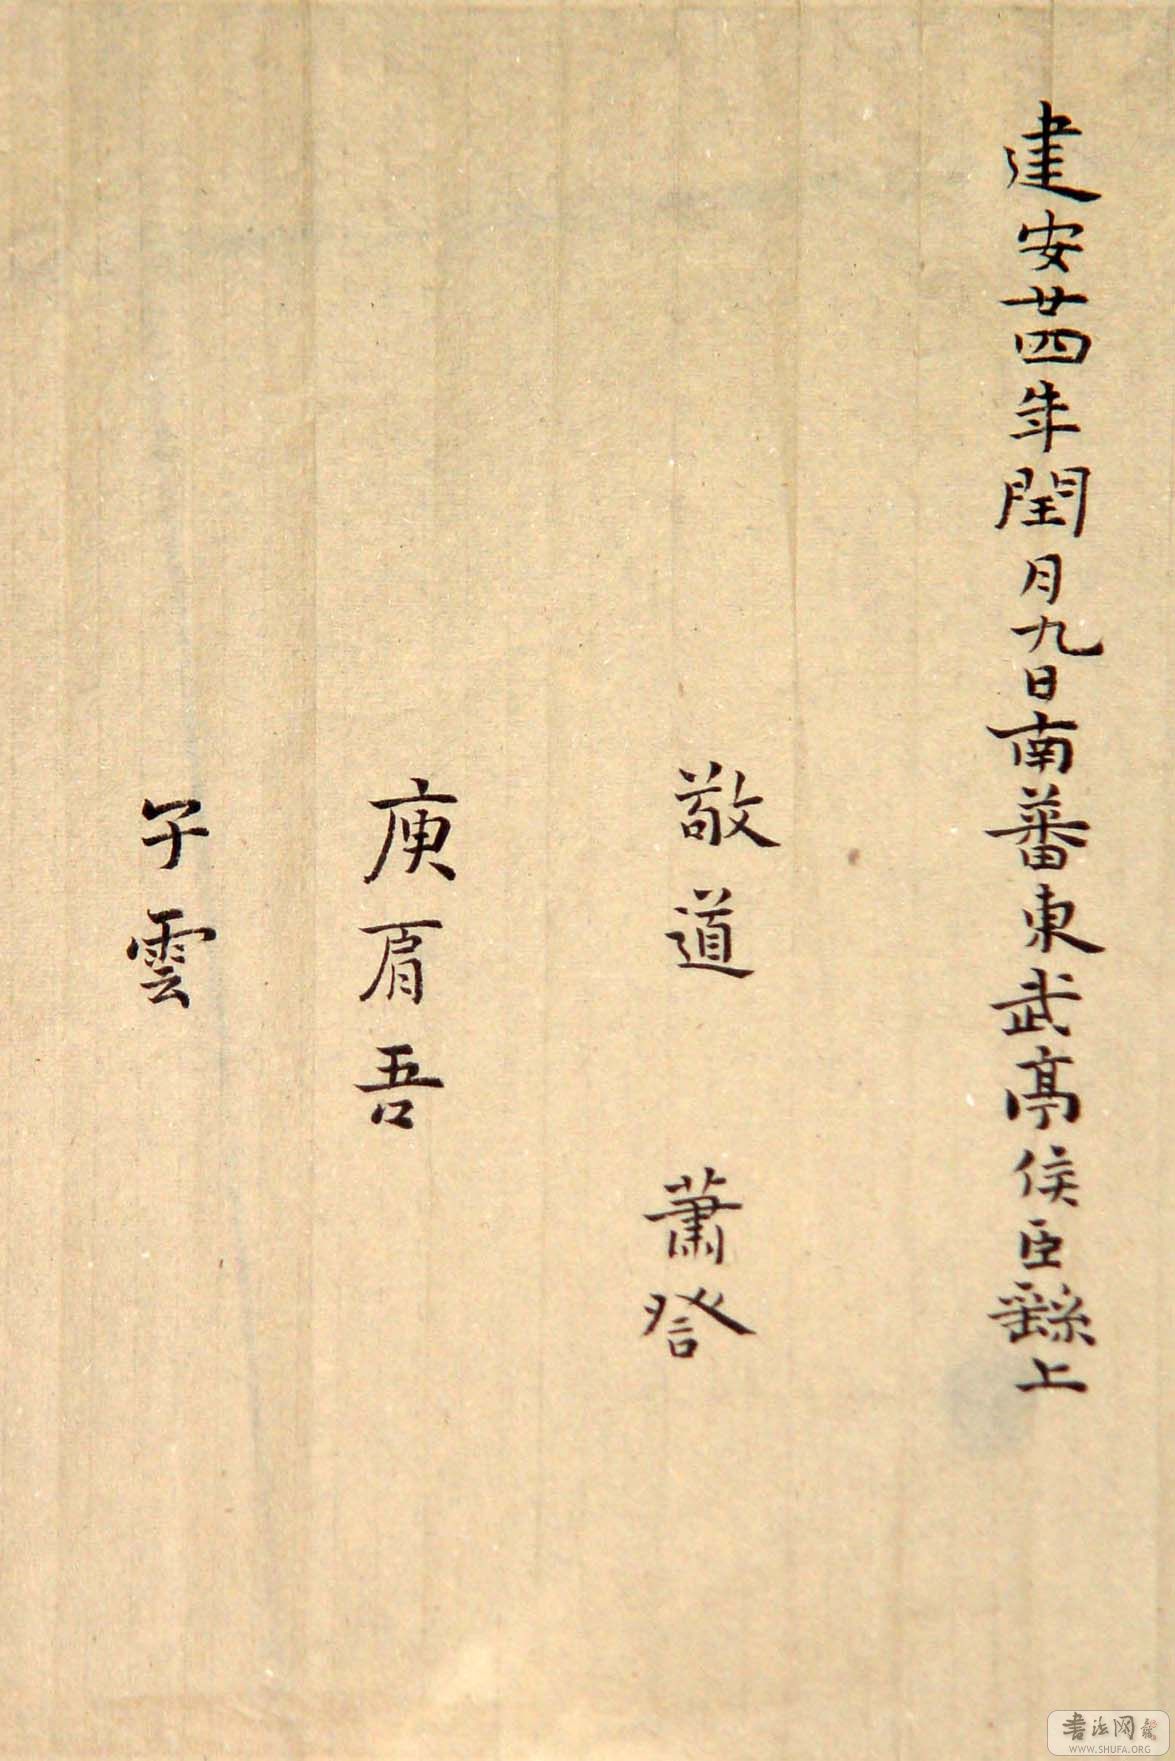 建安廿四年閏月九日南蕃東武亭侯臣繇上
敬道　蕭答
庾肩吾
子雲
書法网
WWW.SHUFA.ORG